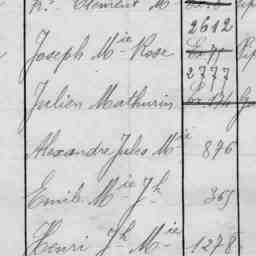 Clément M
2612
Joseph M^ie Rose
2777
Julien Mathurin
Alexandre Jules M^ie 876
Emile M^ie J^h 365
Henri J^h M^ie 1278